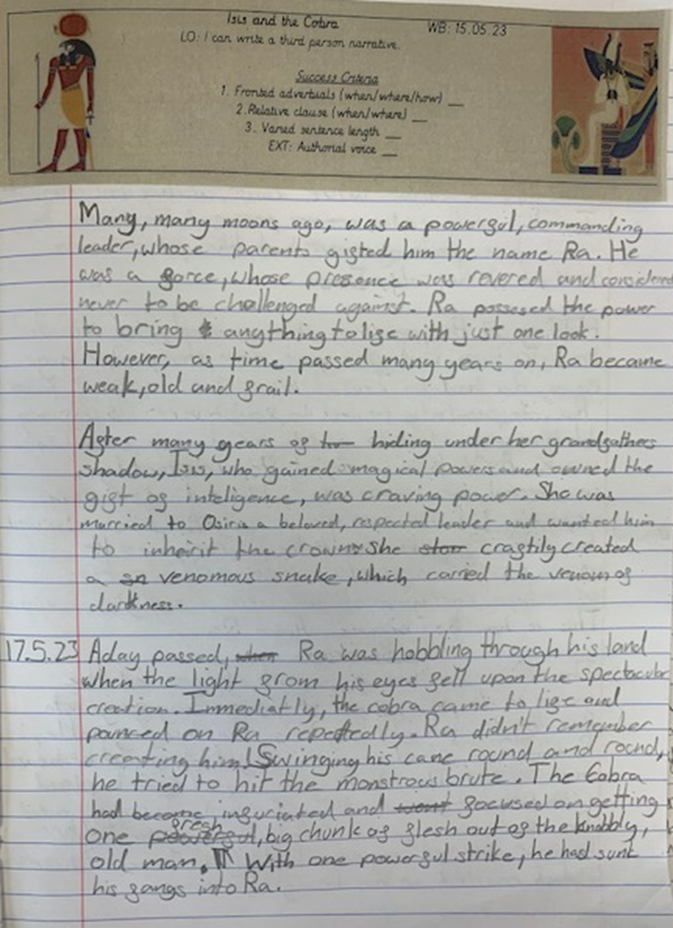 Isis and the Cobra
WB: 15.05.23
LO: I can write a third person narrative.
Success Criteria
1. Fronted adverbials (when/where/how) __
2. Relative clause (when/where) __
3. Varied sentence length __
EXT: Authorial voice __
Many, many moons ago, was a powerful, commanding
leader, whose parents gifted him the name Ra. He
was a force, whose presence was revered and considered
never to be challenged against. Ra possesed the power
to bring anything to life with just one look.
However, as time passed many years on, Ra became
weak, old and frail.
After many years of hiding under her grandfathers
shadow, Isis, who gained magical powers and owned the
gift of inteligence, was craving power. She was
married to Osiris a beloved, respected leader and wanted him
to inherit the crown. She craftily created
a venomous snake, which carried the venom of
darkness.
17.5.23 A day passed, Ra was hobbling through his land
when the light from his eyes fell upon the spectacular
creation. Immediatly, the cobra came to life and
pounced on Ra repeatedly. Ra didn't remember
creating him! Swinging his cane round and round,
he tried to hit the monstrous brute. The Cobra
had became infuriated and focused on getting
one fresh, big chunk of flesh out of the knobbly,
old man. With one powerful strike, he had sunk
his fangs into Ra.